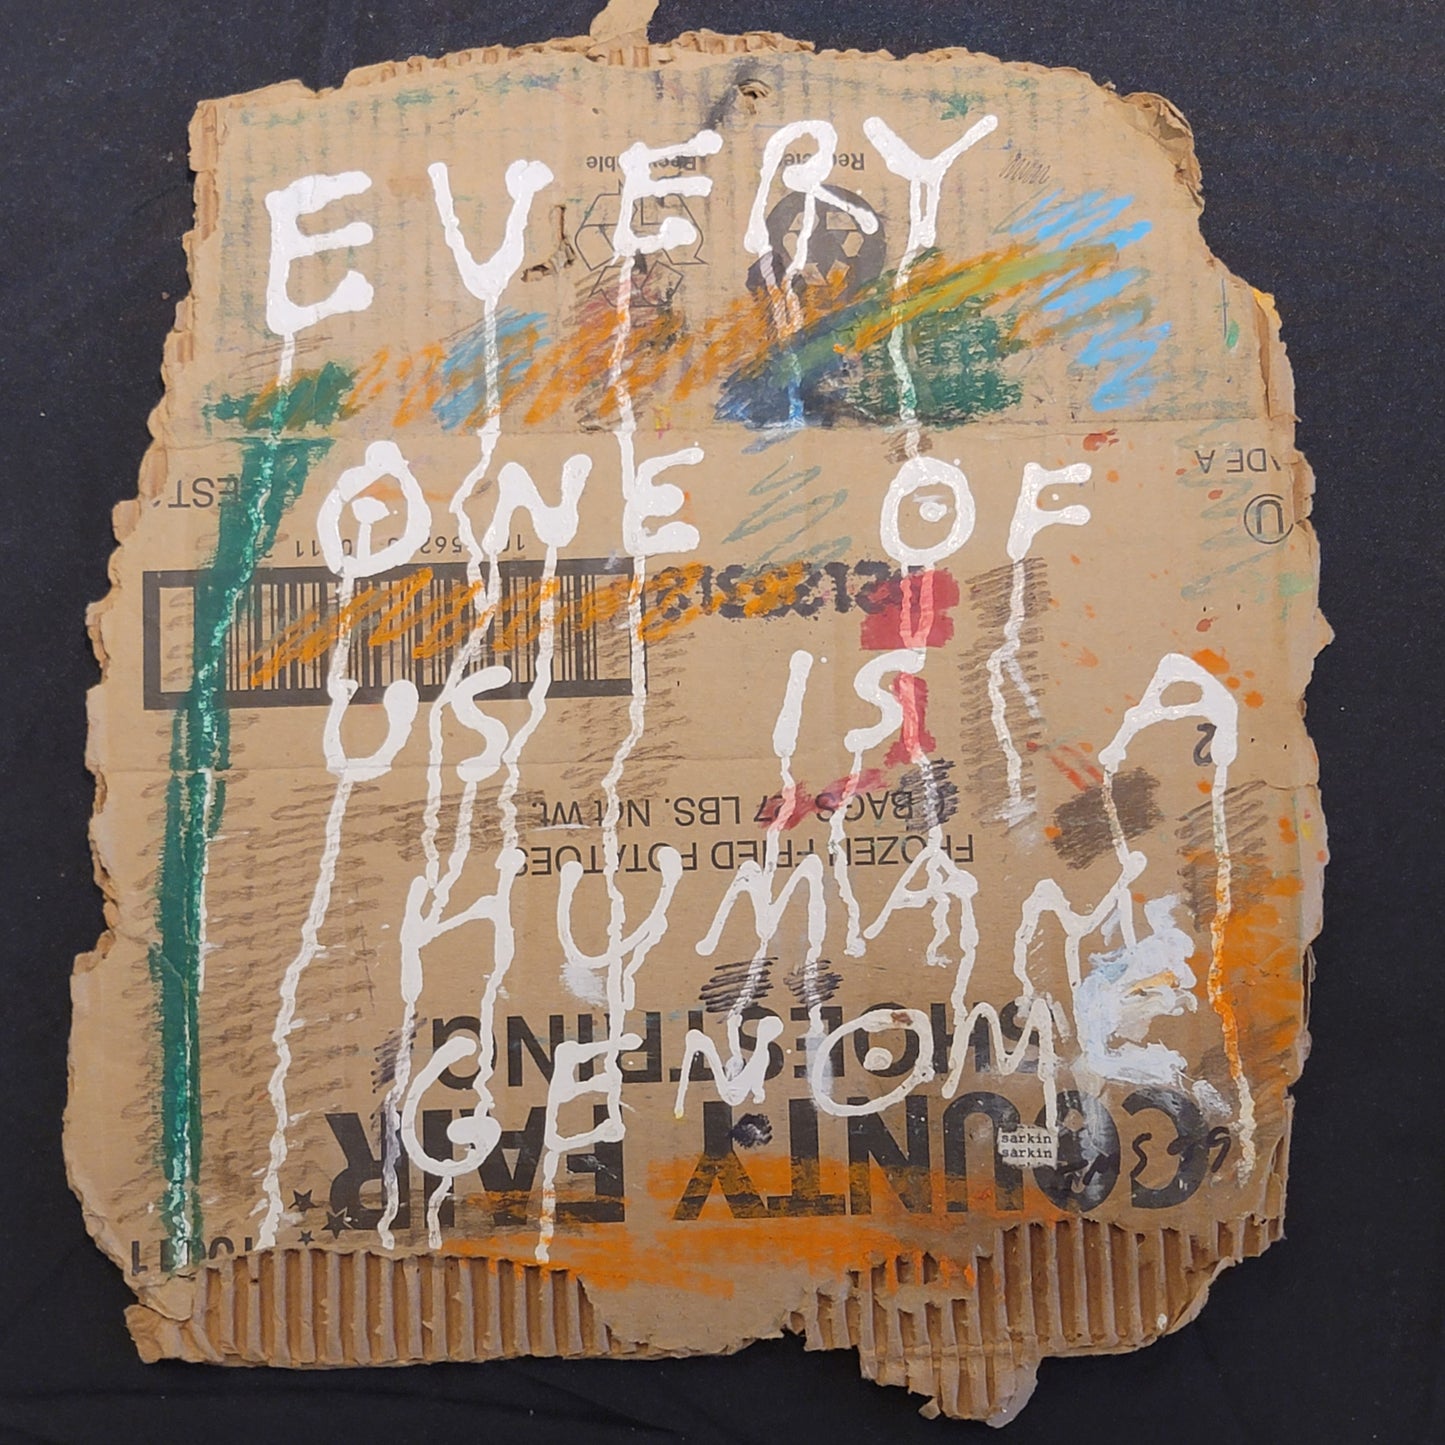 EVERY
ONE OF
US IS A
HUMAN
GENOME
sarkin
sarkin
Recyclable
Recycle
MADE A
U
2
BAGS 27 LBS. Net Wt.
FROZEN FRIED POTATOES
SHOESTRING
COUNTY FAIR